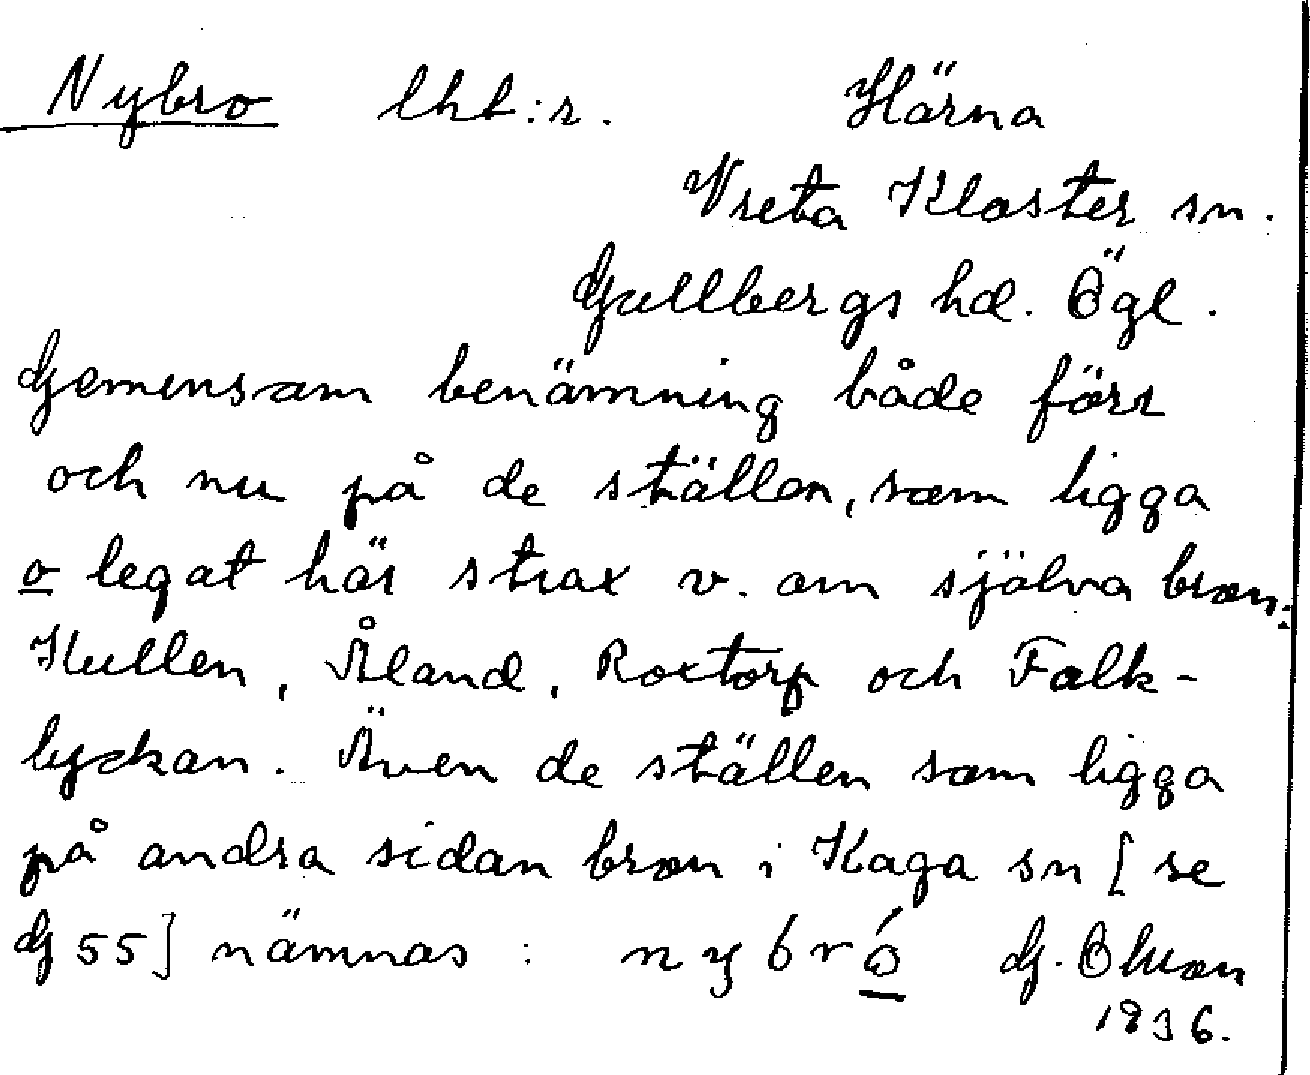 Nybro lht:r. Härna
Vreta Kloster sn.
Gullbergs hd. Ögl.
Gemensam benämning både förr
och nu på de ställen, som ligga
o legat här strax v. om själva bron:
Kullen, Åland, Roxtorp och Falk-
lyckan. Även de ställen som ligga
på andra sidan bron i Kaga sn [se
G 55] nämnas: nybró G.
1936.